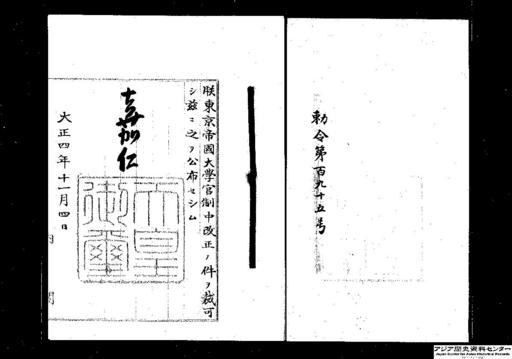 勅令第百九十五号
朕東京帝國大學官制中改正ノ件ヲ裁可
シ茲ニ之ヲ公布セシム
嘉仁
天皇
御璽
大正四年十一月四日
内閣
アジア歴史資料センター
Japan Center for Asian Historical Records